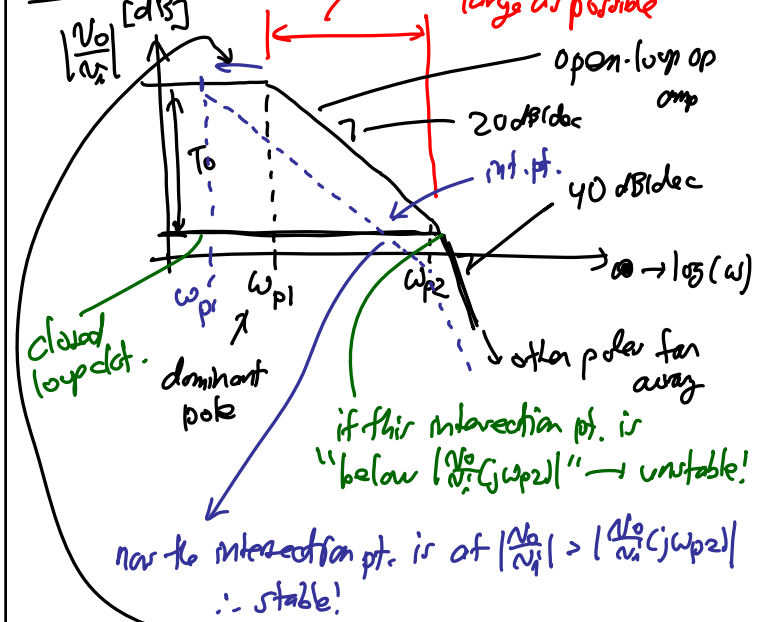 [dB]
large as possible
|Vo/Vi|
open-loop op
amp
20dB/dec
To
int. pt.
40 dB/dec
ωp1
ωp1
ωp2
→ log(ω)
closed
loop
dominant
pole
other poles far
away
if this intersection pt. is
"below |Vo/Vi(jωp2)|" → unstable!
now the intersection pt. is at |Vo/Vi| > |Vo/Vi(jωp2)|
∴ stable!